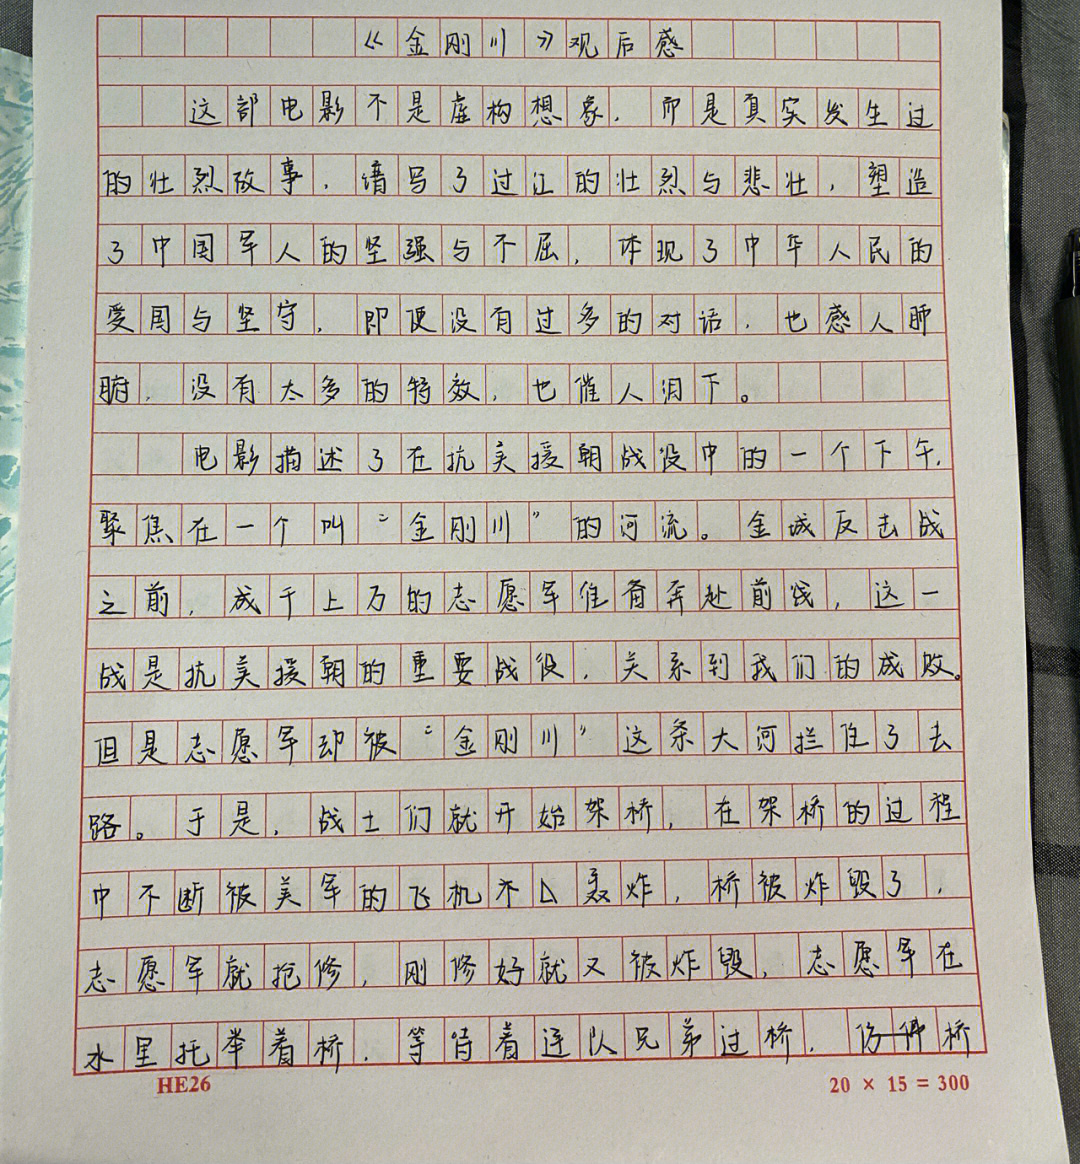 《金刚川》观后感
这部电影不是虚构想象，而是真实发生过
的壮烈故事，谱写了过江的壮烈与悲壮，塑造
了中国军人的坚强与不屈，体现了中华人民的
爱国与坚守，即便没有过多的对话，也感人肺
腑，没有太多的特效，也催人泪下。
电影描述了在抗美援朝战役中的一个下午，
聚焦在一个叫“金刚川”的河流。金城反击战
之前，成千上万的志愿军准备奔赴前线，这一
战是抗美援朝的重要战役，关系到我们的成败。
但是志愿军却被“金刚川”这条大河拦住了去
路。于是，战士们就开始架桥，在架桥的过程
中不断被美军的飞机不轰炸，桥被炸毁了，
志愿军就抢修，刚修好就又被炸毁，志愿军在
水里托举着桥，等待着连队兄弟过桥，桥
HE26
20 × 15 = 300